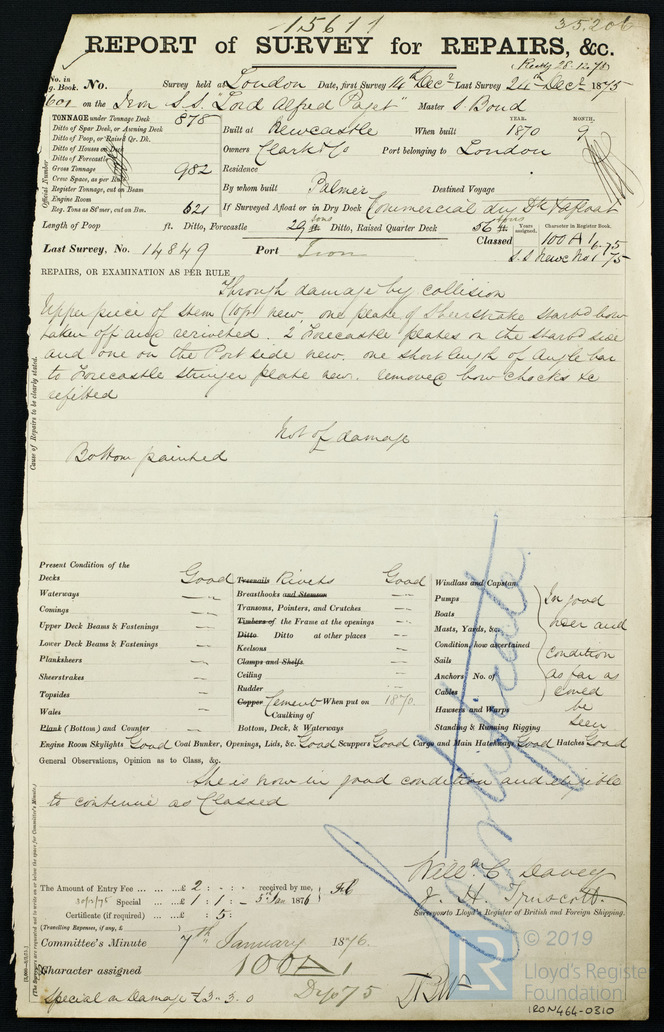 15611
35.206
REPORT of SURVEY for REPAIRS, &c.
(Recd 28.12.75)
No. in Reg. Book. No. Survey held at London Date, first Survey 14th Decr Last Survey 24th Decr 1875
601 on the Iron S.S. "Lord Alfred Paget" Master S. Bond
TONNAGE under Tonnage Deck 878
Ditto of Spar Deck, or Awning Deck
Ditto of Poop, or Raised Qr. Dk.
Ditto of Houses on
Ditto of Forecastle
Gross Tonnage 982
Crew Space, as per Rule
Register Tonnage, cut on Beam
Engine Room
Reg. Tons as St'mer, cut on Bm. 621
Official Number
Built at Newcastle When built YEAR. 1870 MONTH. 9
Owners Clark & Co Port belonging to London
Residence
By whom built Palmer Destined Voyage
If Surveyed Afloat or in Dry Dock Commercial dry Dk & afloat
Length of Poop ft. Ditto, Forecastle 29 tons ft. Ditto, Raised Quarter Deck 56 tons ft.
Classed Years assigned. Character in Register Book.
100 A 1 6.75
S.S. Newc No 1 75
Last Survey, No. 14849 Port Iron
REPAIRS, OR EXAMINATION AS PER RULE
Through damage by collision
Upper piece of Stem (top) new, one plate of Sheerstrake starbd bow
taken off and reriveted. 2 Forecastle plates on the starbd side
and one on the Port side new. one short length of Angle bar
to Forecastle stringer plate new. removed bow chocks &c
refitted
Not of damage
Bottom painted
Cause of Repairs to be clearly stated.
Present Condition of the
Decks Good
Waterways
Comings
Upper Deck Beams & Fastenings
Lower Deck Beams & Fastenings
Planksheers
Sheerstrakes
Topsides
Wales
Plank (Bottom) and Counter
Treenails Rivets Good
Breasthooks and Stemson
Transoms, Pointers, and Crutches
Timbers of the Frame at the openings
Ditto Ditto at other places
Keelsons
Clamps and Shelfs
Ceiling
Rudder
Copper Cement When put on 1870
Caulking of
Bottom, Deck, & Waterways
Windlass and Capstan
Pumps
Boats
Masts, Yards, &c.
Condition, how ascertained
Sails
Anchors No. of
Cables
Hawsers and Warps
Standing & Running Rigging
In good
order and
condition
as far as
could
be
seen
Engine Room Skylights Good Coal Bunker, Openings, Lids, &c. Good Scuppers Good Cargo and Main Hatchways Good Hatches Good
General Observations, Opinion as to Class, &c.
She is now in good condition and eligible
to continue as Classed
Certificate
Willm C Davey
J. H. Truscott
Surveyors to Lloyd's Register of British and Foreign Shipping.
The Amount of Entry Fee £ 2 : - : - received by me,
30/12/75 Special £ 1 : 1 : - 5th Jan 1876
Certificate (if required) £ : 5 :
(Travelling Expenses, if any, £
Committee's Minute 7th January 1876.
Character assigned 100 A 1
Special on Damage £3-3.0
© 2019
Lloyd's Register
Foundation
IRON464-0310